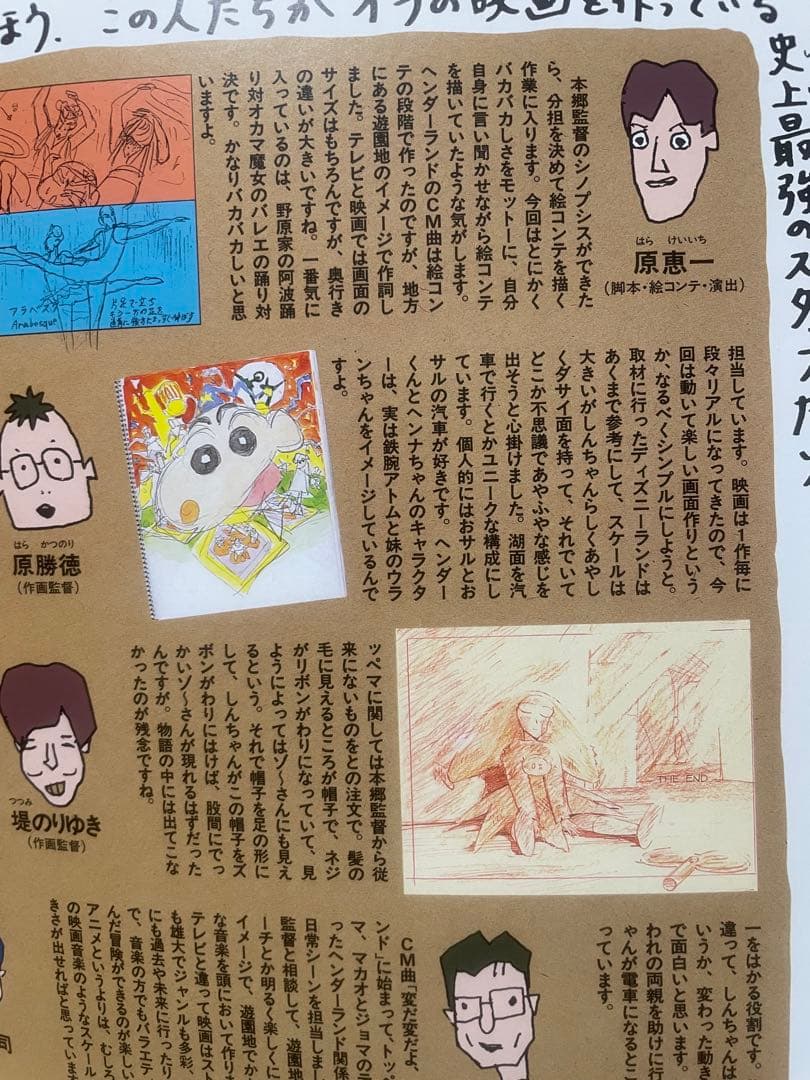 ほう、この人たちがオラの映画を作っている
史上最強のスタッフだゾ
本郷監督のシノプシスができた
ら、分担を決めて絵コンテを描く
作業に入ります。今回はとにかく
バカバカしさをモットーに、自分
自身に言い聞かせながら絵コンテ
を描いていたような気がします。
ヘンダーランドのCM曲は絵コン
テの段階で作ったのですが、地方
にある遊園地のイメージで作詞し
ました。テレビと映画では画面の
サイズはもちろんですが、奥行き
の違いが大きいですね。一番気に
入っているのは、野原家の阿波踊
り対オカマ魔女のバレエの踊り対
決です。かなりバカバカしいと思
いますよ。
はら けいいち
原恵一
(脚本・絵コンテ・演出)
アラベスク
Arabesque
片足で立ち
もう一方の足を
担当しています。映画は1作毎に
段々リアルになってきたので、今
回は動いて楽しい画面作りという
か、なるべくシンプルにしようと。
取材に行ったディズニーランドは
あくまで参考にして、スケールは
大きいがしんちゃんらしくあやし
くダサイ面を持って、それでいて
どこか不思議であやふやな感じを
出そうと心掛けました。湖面を汽
車で行くとかユニークな構成にし
ています。個人的にはおサルとお
サルの汽車が好きです。ヘンダー
くんとヘンナちゃんのキャラクタ
ーは、実は鉄腕アトムと妹のウラ
ンちゃんをイメージしているんで
すよ。
はら かつのり
原勝徳
(作画監督)
ッペマに関しては本郷監督から従
来にないものをとの注文で。髪の
毛に見えるところが帽子で、ネジ
がリボンがわりになっていて、見
ようによってはゾ〜さんにも見え
るという。それで帽子を足の形に
して、しんちゃんがこの帽子をズ
ボンがわりにはけば、股間にでっ
かいゾ〜さんが現れるはずだった
んですが。物語の中には出てこな
かったのが残念ですね。
つつみ
堤のりゆき
(作画監督)
THE END
ーをはかる役割です。
違って、しんちゃんは
いうか、変わった動き
で面白いと思います。
われの両親を助けに行
ゃんが電車になるとこ
っています。
CM曲「変だ変だよ、
ンド」に始まって、トッペ
マ、マカオとジョマのテ
ったヘンダーランド関係
日常シーンを担当しまし
監督と相談して、遊園地
ーチとか明るく楽しくに
イメージで、遊園地でか
な音楽を頭において作りま
テレビと違って映画はスト
も雄大でジャンルも多彩、
にも過去や未来に行ったり
で、音楽の方でもバラエテ
んだ冒険ができるのが楽しい
アニメというよりは、むしろ
の映画音楽のようなスケール
きさが出せればと思っています
司